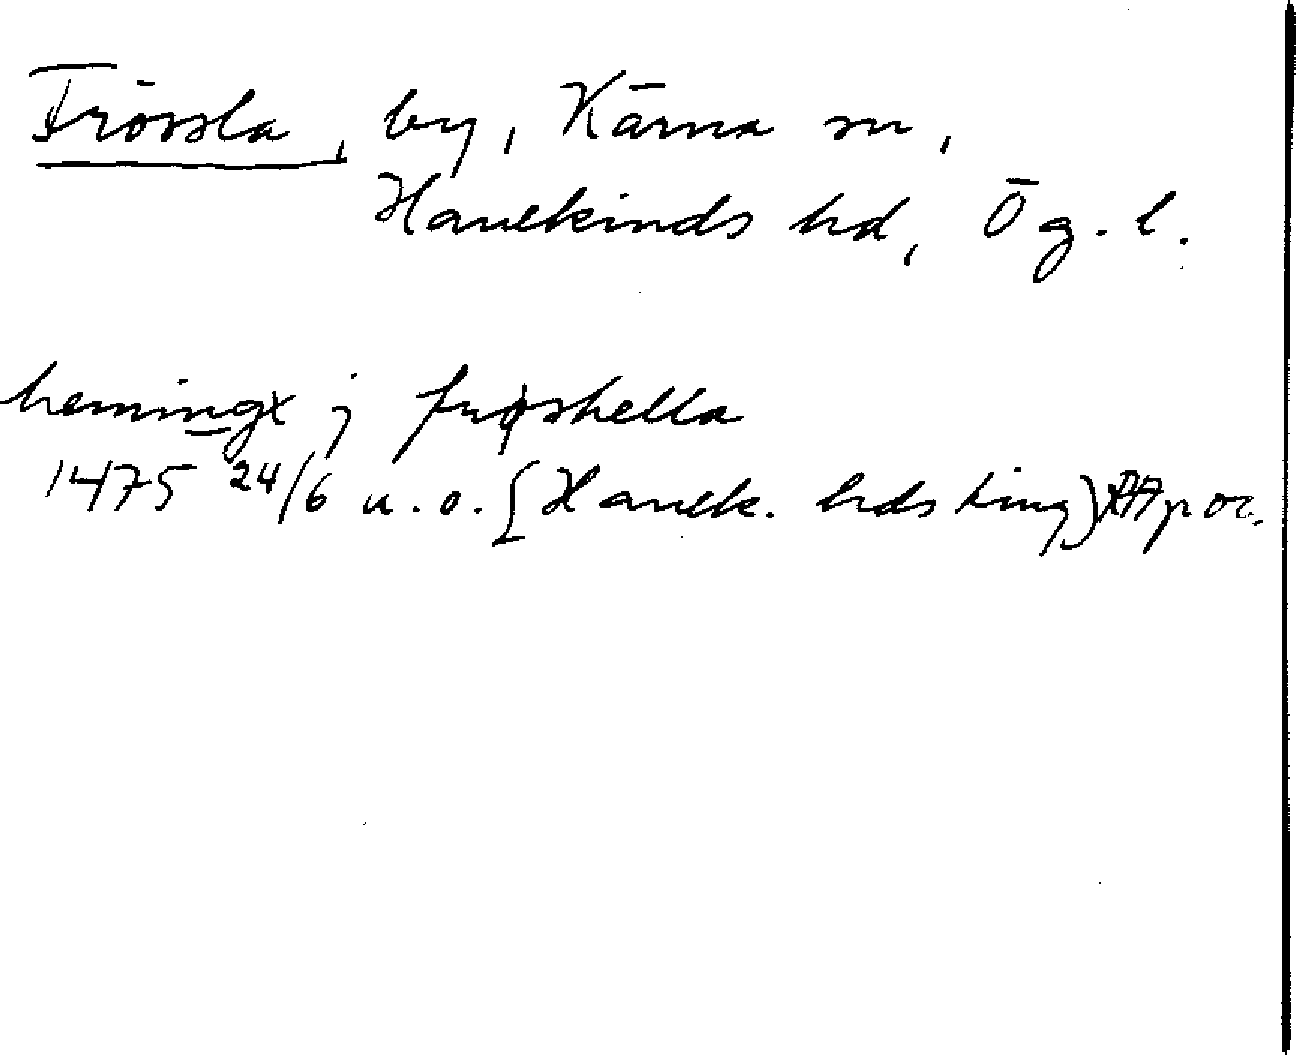 Frössla, by, Kärna sn,
Hanekinds hd, Ög. l.
hemingx j frøshella
1475 24/6 u. o. [Hanek. hds ting) RAp or.